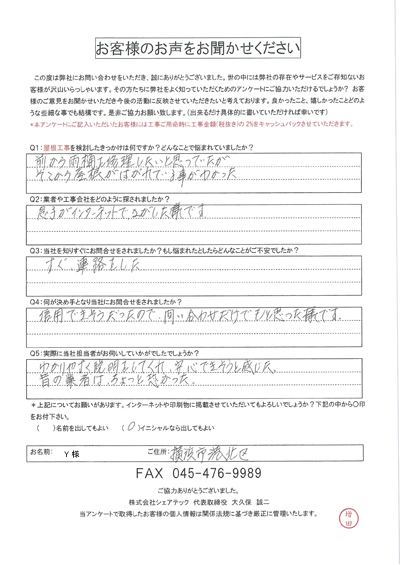 お客様のお声をお聞かせください
この度は弊社にお問い合わせをいただき、誠にありがとうございました。世の中には弊社の存在やサービスをご存知ないお
客様が沢山いらっしゃいます。その方たちに弊社をよく知っていただくためのアンケートにご協力いただけるでしょうか？ お客
様のご意見をお聞かせいただき今後の活動に反映させていただきたいと考えております。良かったこと、嬉しかったことどのよう
な些細な事でも結構です。是非ご協力お願い致します。（出来るだけ具体的に書いていただければ幸いです）
*本アンケートにご記入いただいたお客様には工事ご用命時に工事金額（税抜き）の 2%をキャッシュバックさせていただきます。
Q1:屋根工事を検討したきっかけは何ですか？どんなことで悩まれていましたか？
前から雨樋を修理したいと思っていたが
そこから屋根がはがれている事がわかった
Q2：業者や工事会社をどのように探されましたか？
息子がインターネットでさがした様です
Q3：当社を知りすぐにお問合せをされましたか？もし悩まれたとしたらどんなことがご不安でしたか？
すぐ、連絡をした
Q4：何が決め手となり当社にお問合せをされましたか？
信用できそうだったので、問い合わせだけでもと思った様です。
Q5：実際に当社担当者がお伺いしていかがでしたでしょうか？
わかりやすく説明をしてくれ、安心できそうと感じた。
昔の業者は、ちょっと悪かった。
*上記についてお願いがあります。インターネットや印刷物に掲載させていただいてもよろしいでしょうか？下記の中から〇印
をお付下さい。
（ ）名前を出してもよい （〇）イニシャルなら出してもよい
お名前： Y 様 ご住所： 横浜市港北区
FAX 045-476-9989
ご協力ありがとうございました。
株式会社シェアテック 代表取締役 大久保 誠二
当アンケートで取得したお客様の個人情報は関係法規に基づき厳正に管理いたします。
増田